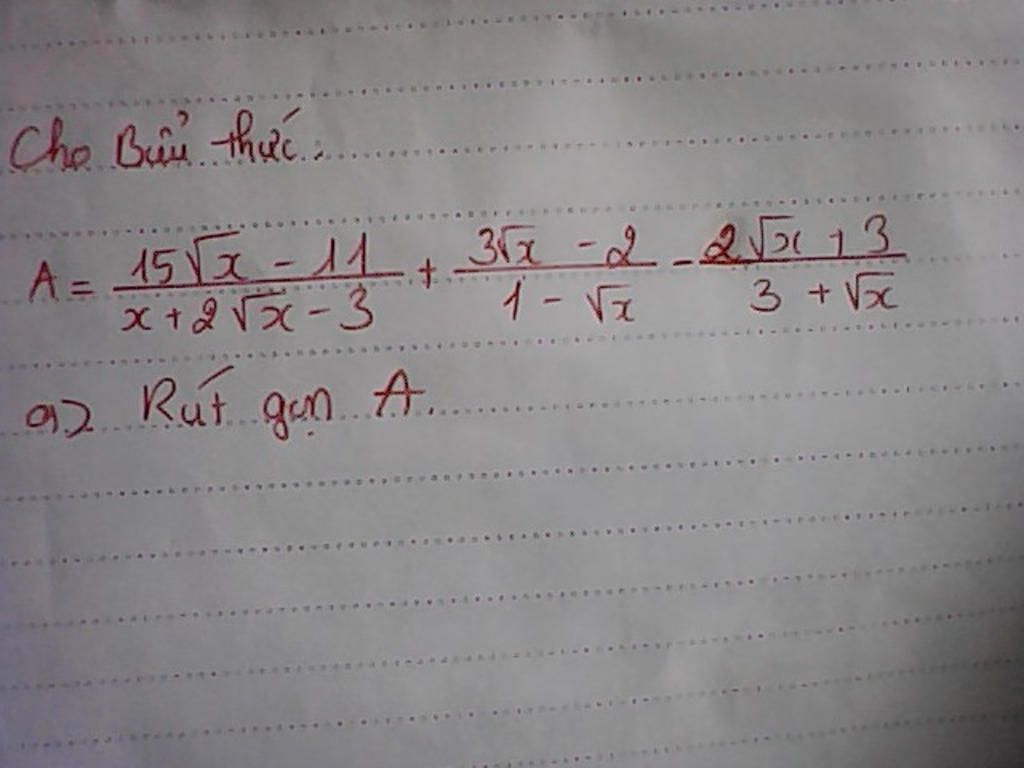 Cho Biểu thức:
A = \frac{15\sqrt{x} - 11}{x + 2\sqrt{x} - 3} + \frac{3\sqrt{x} - 2}{1 - \sqrt{x}} - \frac{2\sqrt{x} + 3}{3 + \sqrt{x}}
a) Rút gọn A.